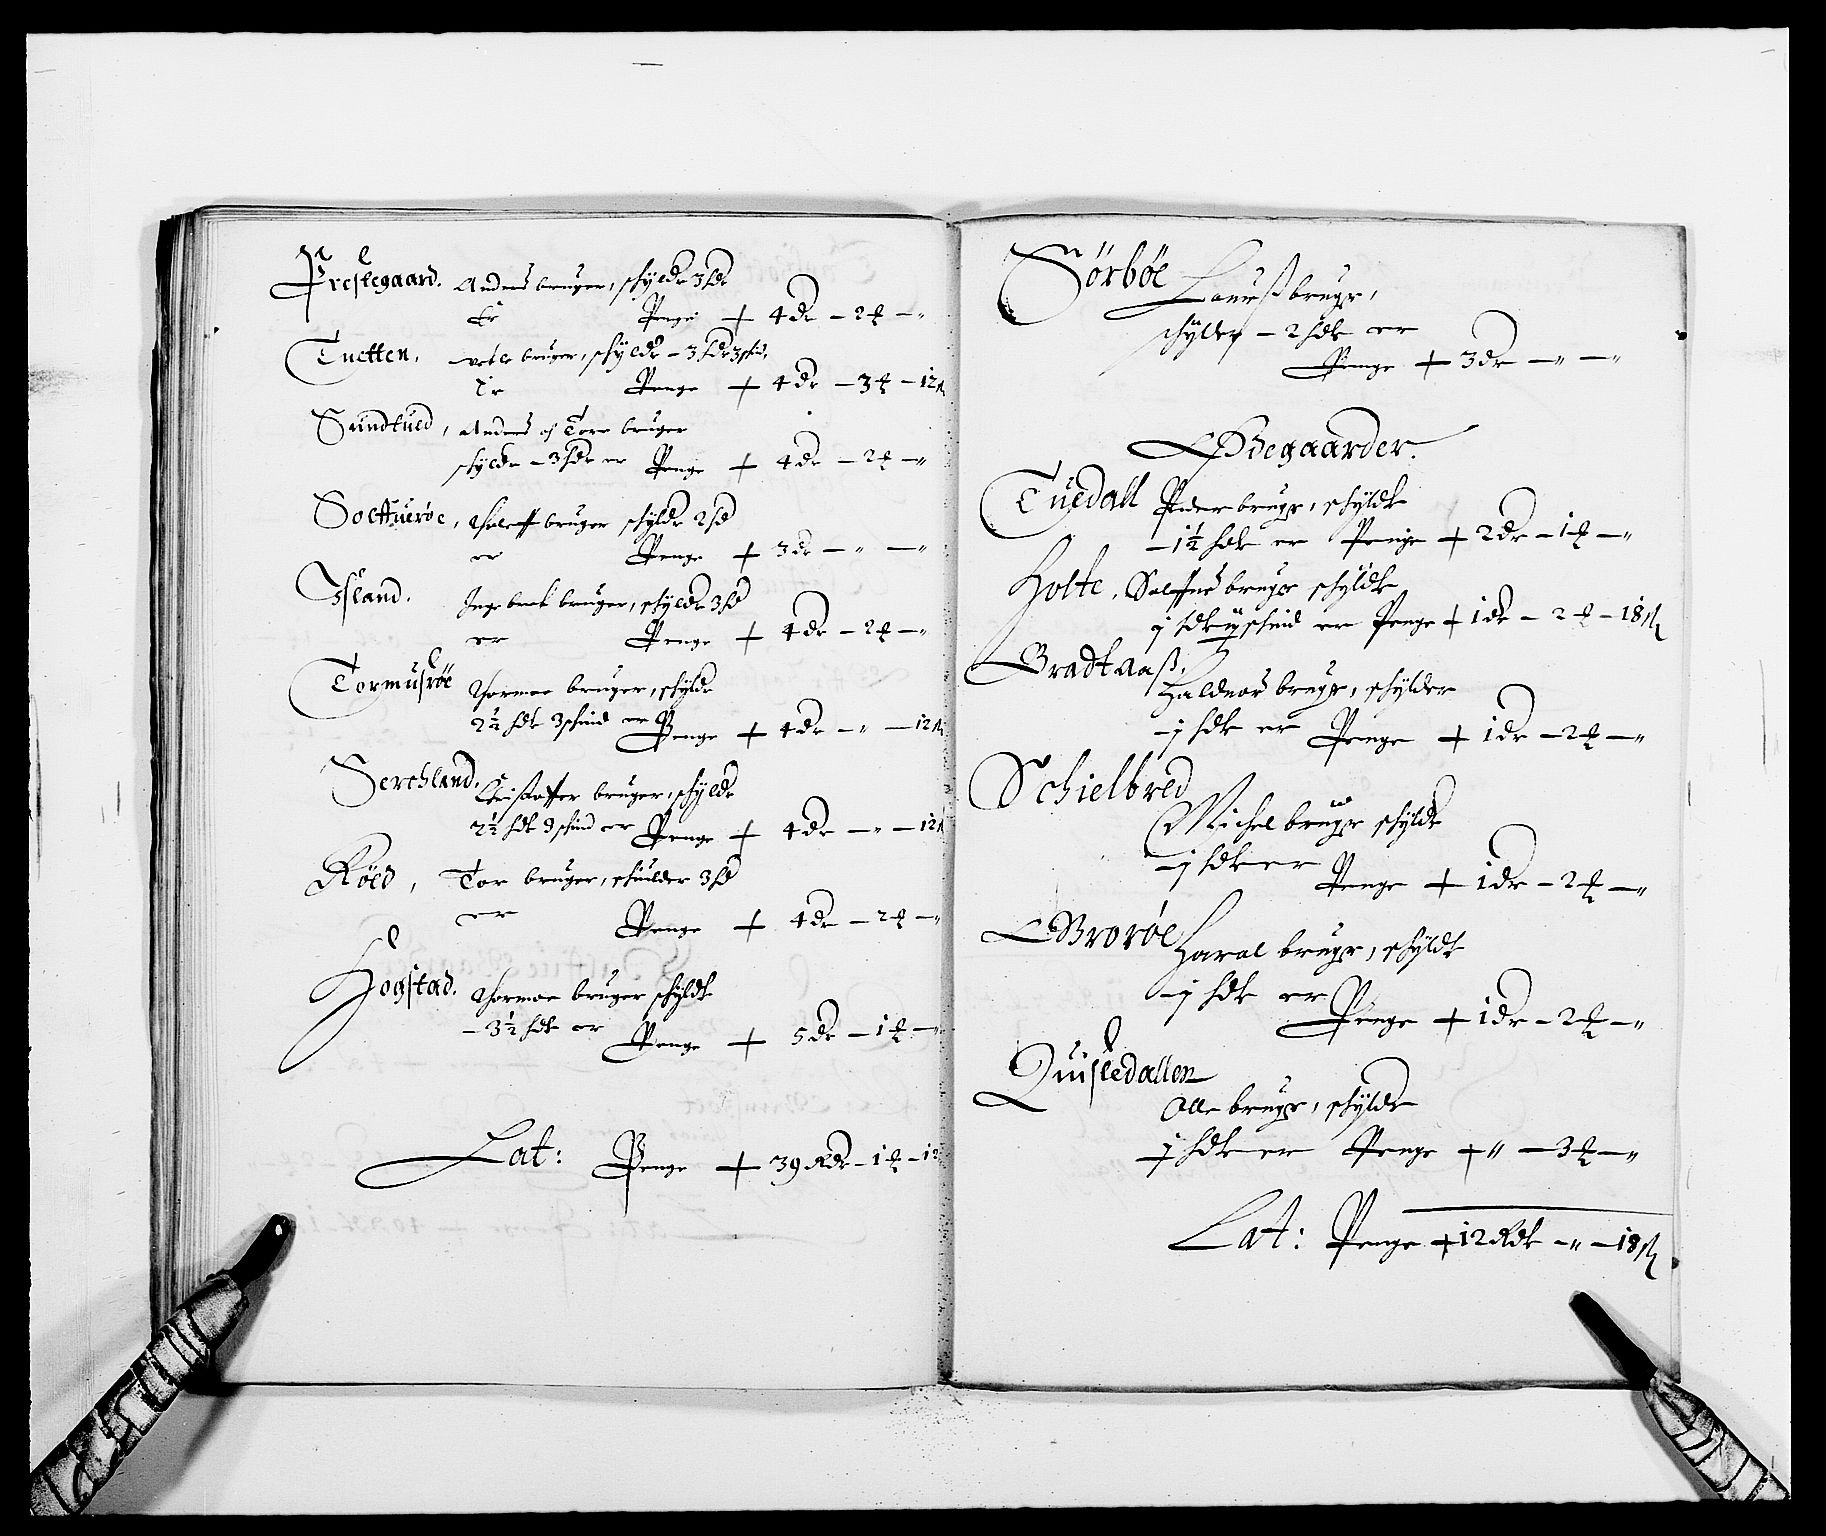 Prestegaard. Anders bruger, schylder 3 hdr
er Penge + 4 dr – 2 ₰ – „
Tuetten, bruger, schylder – 3 hdr 3 schin.
Er Penge + 4 dr – 3 ₰ – 12 ß
Sundtued, Anders og Tore bruger
schylder – 3 hdr er Penge + 4 dr – 2 ₰ – „
Soeffueröe, bruger schylder 2 hd
er Penge + 3 dr – „ – „
Jsland. Jngebret bruger, schylder 3 hd
er Penge + 4 dr – 2 ₰ – „
Tormusröe Thormoe bruger, schylder
2½ hdr 3 schind er Penge + 4 dr – „ – 12 ß
Serchland. Christoffer bruger, schylder
2½ hdr 3 schind er Penge + 4 dr – „ – 12 ß
Röed, Tor bruger, schuilder 3 hd
er Penge + 4 dr – 2 ₰ – „
Hogstad. Thormoe bruger schylder
– 3½ hdr er Penge + 5 dr – 1 ₰ – „
Lat: Penge + 39 Rdr – 1 ₰ – 12
Sörböe Lauriß bruger,
schylder – 2 hdr er
Penge + 3 dr – „ – „
Ödegaarder.
Tuedall Peder bruger, schylder
– 1½ hdr er Penge + 2 dr – 1 ₰ – „
Holte, bruger schylder
j hdr ij schind er Penge + 1 dr – 2 ₰ – 18 ß
Bradtaaß, Halduor bruger, schylder
– j hdr er Penge + 1 dr – 2 ₰ – „
Schielbred
Michel bruger schylder
– j hdr er Penge + 1 dr – 2 ₰ – „
Broröe Haral bruger, schylder
– j hdr er
Penge + 1 dr – 2 ₰ – „
Quisledallen
Olle bruger, schylder
– j hdr er Penge + „ – 3 ₰ – „
Lat: Penge + 12 Rdr – „ – 18 ß